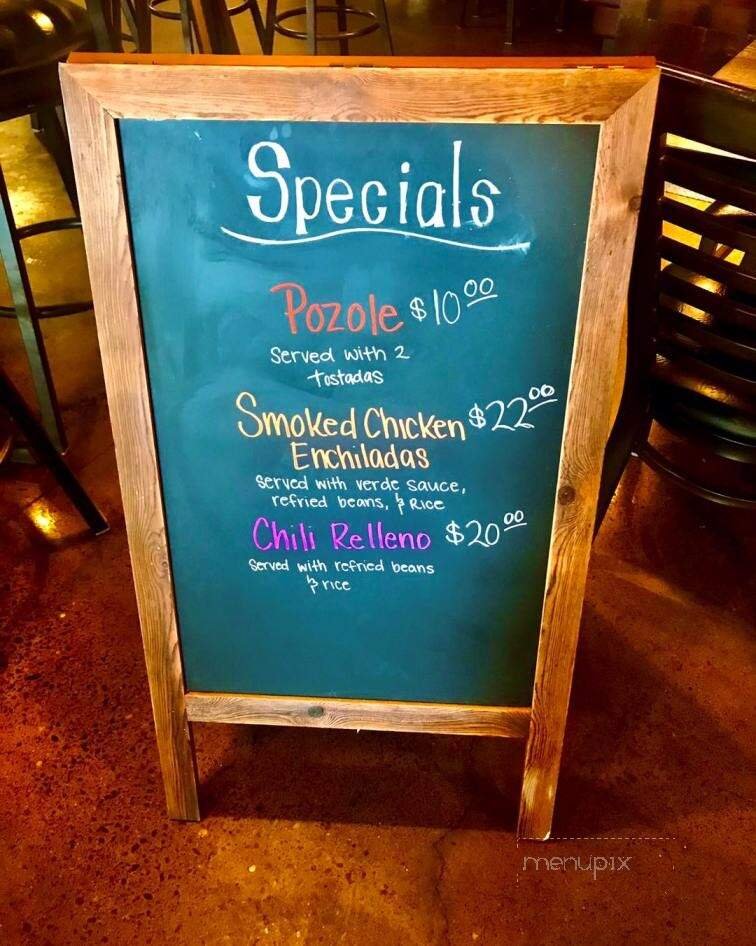 Specials
Pozole $10.00
Served with 2
tostadas
Smoked Chicken $22.00
Enchiladas
Served with verde sauce,
refried beans, & Rice
Chili Relleno $20.00
Served with refried beans
& rice
menupix